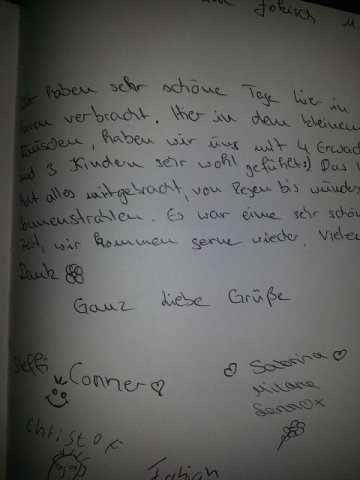 Jokisch M
Wir haben sehr schöne Tage hier in
verbracht. Hier in dem kleinen
Häuschen, haben wir uns mit 4 Erwac
und 3 Kindern sehr wohl gefühlt :) Das
hat alles mitgebracht, von Regen bis wunder
Sonnenstrahlen. Es war eine sehr schö
Zeit, wir kommen gerne wieder. Vielen
Dank
Ganz liebe Grüße
Steffi
Conner
Sabrina
Milana
Christof
Fabian